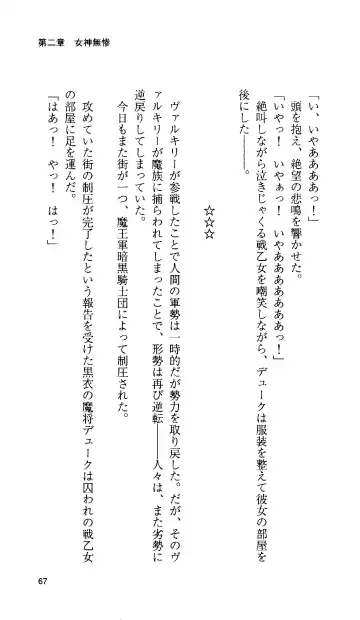 第二章　女神無惨
「い、いやああああっ！」
　頭を抱え、絶望の悲鳴を響かせた。
「いやっ！　いやぁっ！　いやああああああっ！」
　絶叫しながら泣きじゃくる戦乙女を嘲笑しながら、デュークは服装を整えて彼女の部屋を
後にした――。
☆☆☆
　ヴァルキリーが参戦したことで人間の軍勢は一時的だが勢力を取り戻した。だが、そのヴ
ァルキリーが魔族に捕らわれてしまったことで、形勢は再び逆転――人々は、また劣勢に
逆戻りしてしまっていた。
　今日もまた街が一つ、魔王軍暗黒騎士団によって制圧された。
　攻めていた街の制圧が完了したという報告を受けた黒衣の魔将デュークは囚われの戦乙女
の部屋に足を運んだ。
「はあっ！　やっ！　はっ！」
67